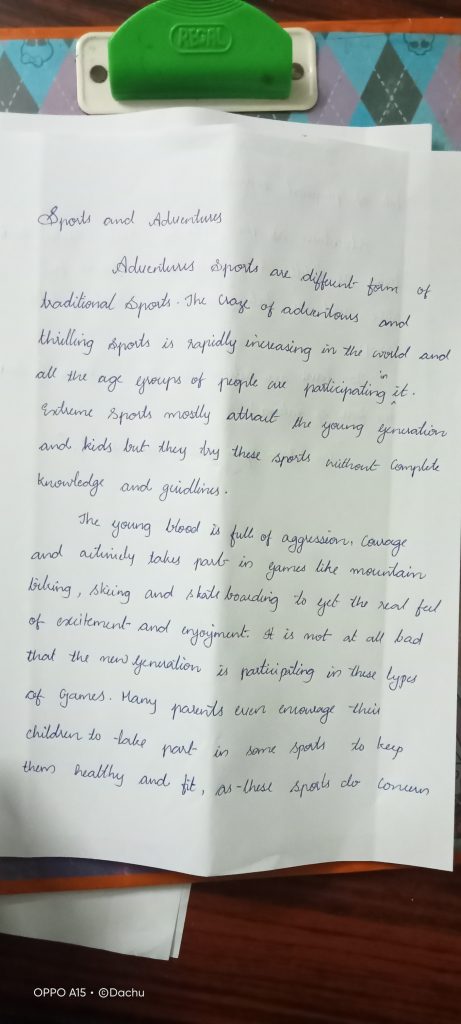 REGAL
Sports and Adventures
Adventures Sports are different form of
traditional Sports. The Craze of adventous and
thrilling Sports is rapidly increasing in the world and
all the age groups of people are participating in it.
Extreme Sports mostly attrait the young generation
and kids but they try these sports without Complete
knowledge and guidlines.
The young blood is full of aggression, Courage
and activiely takes part in games like mountain
biking, skiing and skate boarding to get the real feel
of excitement and enjoyment. It is not at all bad
that the new generation is participiting in these types
of Games. Many parents even encourage their
children to take part in some sports to keep
them healthy and fit, as these sports do concern
OPPO A15 • ©Dachu